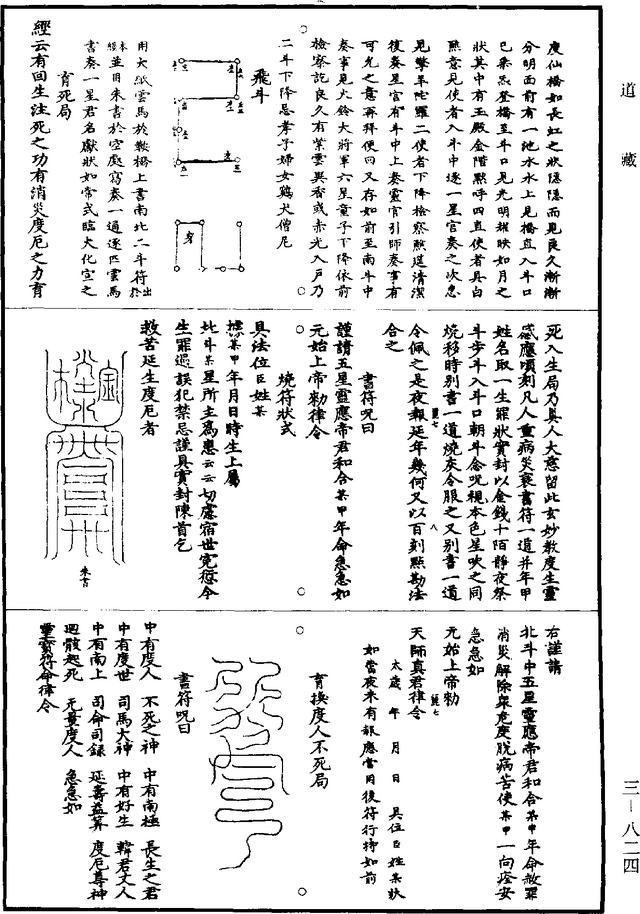 道藏
度仙橋如長虹之狀隱隱而見良久漸漸
分明面前有一池水水上見橋直入斗口
已乘炁登橋至斗口見光明耀映如月之
狀其中有玉殿金階默呼四直使者具白
熊意見使者入斗中逐一星宮奏之次急
見擎羊陀羅二使者下降檢察熊筵清潔
後奏星官有斗中上奏靈官引師奏事有
可允之意再拜便回又存如前至南斗中
奏事見火鈴大將軍六星童子下降依前
檢察訖良久有紫雲異香或赤光入戶乃
二斗下降忌孝子婦女鷄犬僧尼
飛斗
用大紙雲馬於鞍橋上書南北二斗符出於本經
並用朱書於空處寫奏一通逐匹雲馬
書奏一星君名獻狀如常式臨大化宣之
育死局
經云有回生注死之功有消災度厄之力育
死入生局乃真人大慈留此玄妙教度生靈
感應頃刻凡人重病災衰書符一道并年甲
姓名取一生罪狀實封以金錢十陌靜夜祭
斗步斗入斗口朝斗念呪視本色星吹之同
燒移時別書一道燒灰令服之又別書一道
令佩之是夜報延年幾何又以百刻點勘法
合之
書符呪曰
謹請五星靈應帝君和合某甲年命急急如
元始上帝勅律令
燒符狀式
具法位臣姓某
據某甲年月日時生上屬
北斗某星所主為患云云切慮宿世冤愆今
生罪過誤犯禁忌謹具實封陳首乞
救苦延生度厄者
朱書
右謹請
北斗中五星靈應帝君和合某甲年命赦罪
消災解除眾厄度脫病苦使某甲一向痊安
急急如
元始上帝勅
天師真君律令
太歲年月日具位臣姓某狀
如當夜未有報應當用後符行持如前
育換度人不死局
書符呪曰
中有度人 不死之神 中有南極 長生之君
中有度世 司馬大神 中有好生 韓君丈人
中有南上 司命司錄 延壽益筭 度厄尊神
迴骸起死 無量度人 急急如
靈寶符命律令
三-八二四